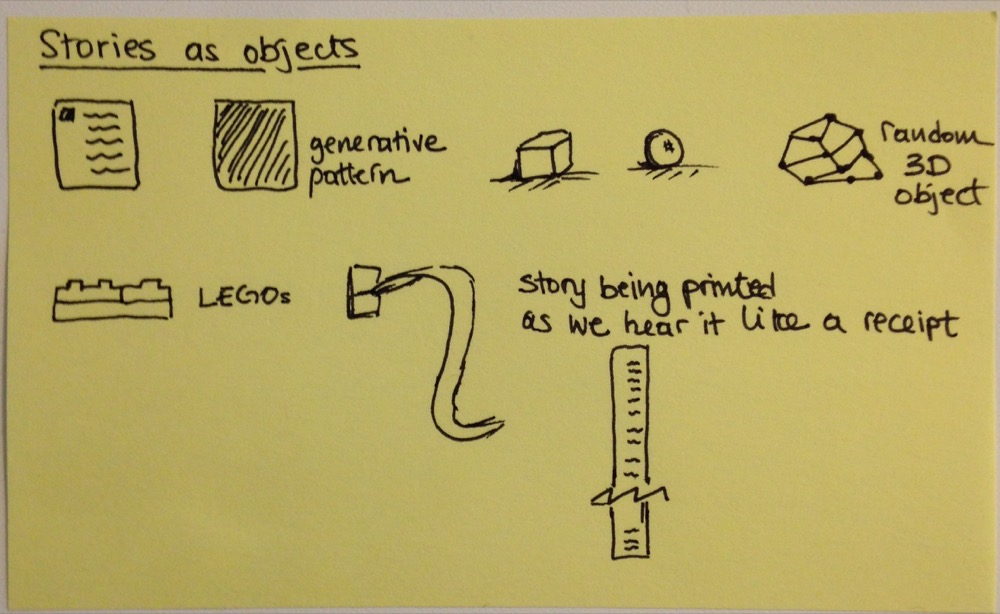 Stories as objects
generative
pattern
random
3D
object
LEGOs
story being printed
as we hear it like a receipt